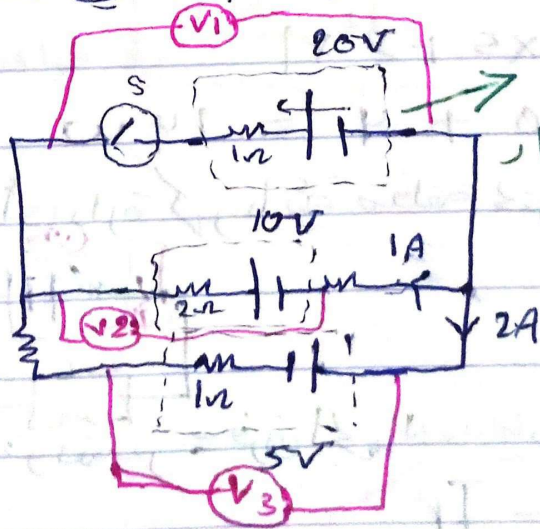 V1
20V
S
1Ω
10V
1A
2Ω
V2
2A
1Ω
5V
V3